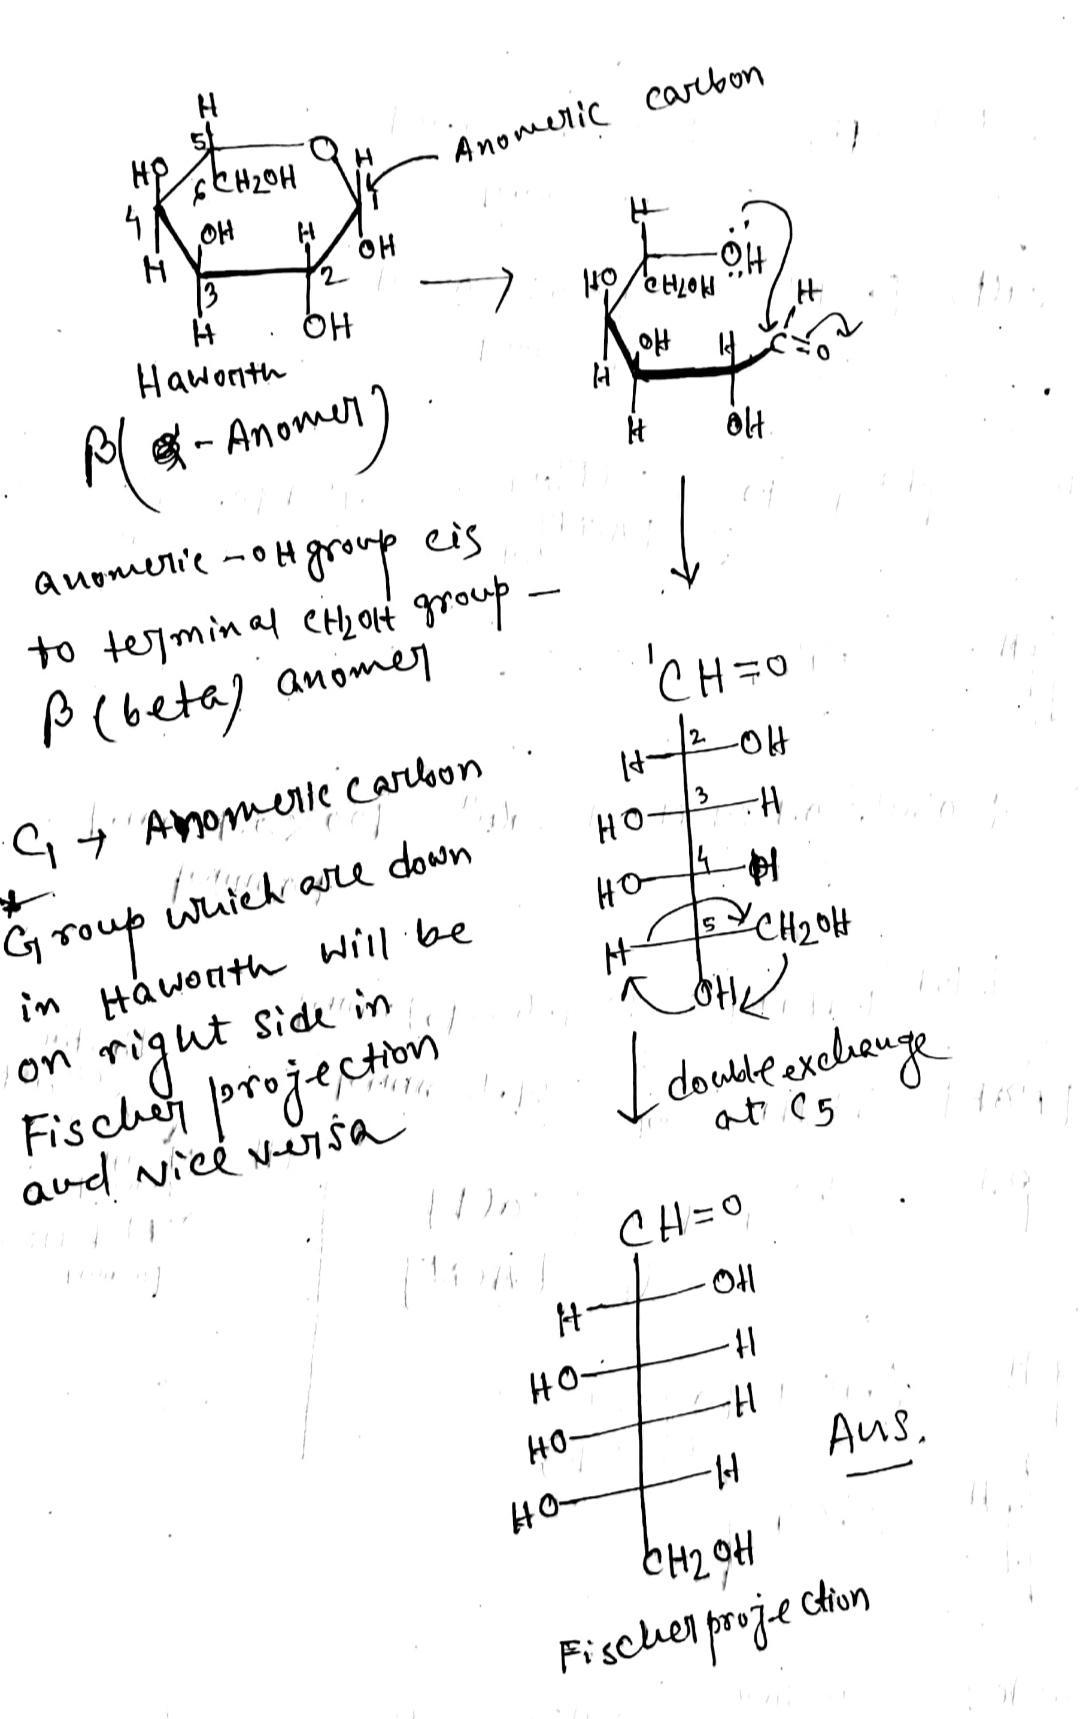 Anomeric carbon
H
5
O
H
HO
6 CH2OH
1
4
OH
H
OH
H
2
3
H
OH
Haworth
β( α - Anomer)
H
ÖH
HO
CH2OH
H
OH
H
C=O
H
H
OH
anomeric -OH group cis
to terminal CH2OH group -
β (beta) anomer
C1 → Anomeric carbon
* Group which are down
in Haworth will be
on right side in
Fischer projection
and vice versa
1CH=O
H 2 OH
HO 3 H
HO 4 H
H 5 CH2OH
OH
double exchange
at C5
CH=O
H OH
HO H
HO H
HO H
CH2OH
Ans.
Fischer projection